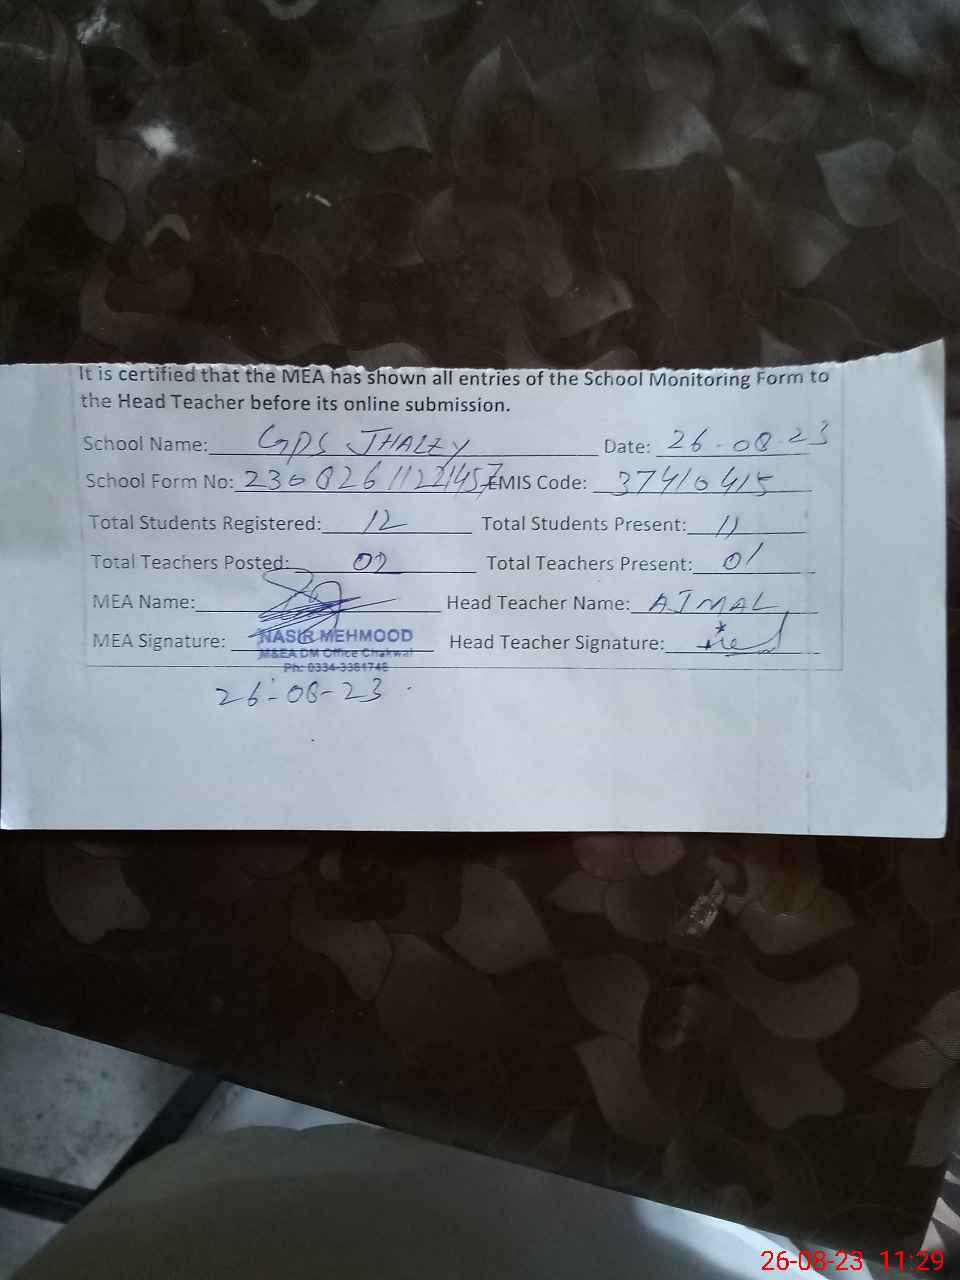 It is certified that the MEA has shown all entries of the School Monitoring Form to
the Head Teacher before its online submission.
School Name: GPS JHALEY Date: 26-08-23
School Form No: 23082611221457 EMIS Code: 37410415
Total Students Registered: 12 Total Students Present: 11
Total Teachers Posted: 02 Total Teachers Present: 01
MEA Name: Head Teacher Name: AJMAL
MEA Signature: NASIR MEHMOOD Head Teacher Signature:
M&EA DM Office Chakwal
Ph: 0334-3381748
26-08-23
26-08-23 11:29